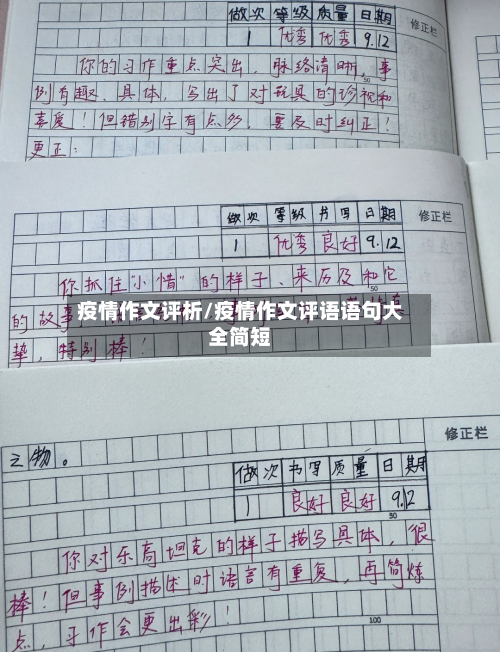 做次 等级 质量 日期
修正栏
1 优秀 优秀 9.12
你的习作重点突出，脉络清晰，事
50
例有趣、具体，写出了对玩具的珍视和
喜爱！但错别字有点多，要及时纠正！
更正：
做次 等级 书写 日期
修正栏
1 优秀 良好 9.12
你抓住“小惜”的样子、来历及和它
50
的故事
疫情作文评析/疫情作文评语语句大
全简短
挚，特别棒！
修正栏
之物。
做次 书写 质量 日期
1 良好 良好 9.12
50
你对乐高坦克的样子描写具体，很
棒！但事例描述时语言有重复，再简炼
点，习作会更出彩！
100